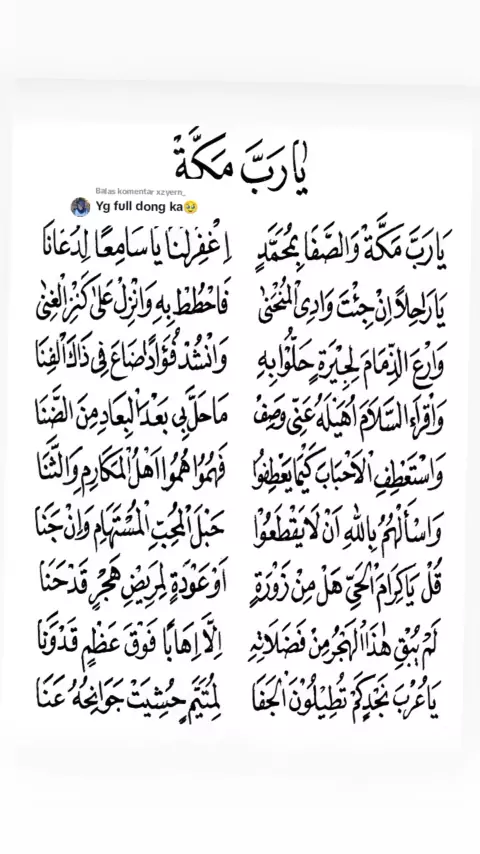 يَارَبَّ مَكَّةْ
Balas komentar xzyern_
Yg full dong ka🥹
يَارَبَّ مَكَّةْ وَالصَّفَا بِمُحَمَّدٍ اِغْفِرْلَنَا يَاسَامِعًا لِدُعَانَا
يَارَاحِلًا اِنْ جِئْتَ وَادِى الْمُنْحَنٰى فَاحْطُطْ بِهِ وَانْزِلْ عَلٰى كَنْزِ الْغِنٰى
وَارْعَ الذِّمَامَ لِجِيْرَةٍ حَلُّوْا بِهِ وَانْشُدْ فُؤَادًا ضَاعَ فِى ذَاكَ الْفِنَا
وَاقْرَءِ السَّلَامَ اُهَيْلَهُ عَنِّى وَصِفْ مَاحَلَّ بِى بَعْدَ الْبِعَادِ مِنَ الضَّنَا
وَاسْتَعْطِفِ الْاَحْبَابَ كَيْمَا يَعْطِفُوْا فَهُمُوْا هُمُوْا اَهْلُ الْمَكَارِمِ وَالثَّنَا
وَاسْأَلْهُمُ بِاللهِ اَنْ لَا يَقْطَعُوْا حَبْلَ الْمُحِبِّ الْمُسْتَهَامِ وَاِنْ جَنَا
قُلْ يَاكِرَامَ الْحَيِّ هَلْ مِنْ زَوْرَةٍ اَوْعَوْدَةٍ لِمَرِيْضِ هَجْرٍ قَدْ حَنَا
لَمْ يُبْقِ هٰذَا الْهَجْرُ مِنْ فَضَلَاتِهِ اِلَّا اِهَابًا فَوْقَ عَظْمٍ قَدْ وَنَا
يَاعُرْبَ نَجْدٍ كَمْ تُطِيْلُوْنَ الْجَفَا لِمُتَيَّمٍ حُشِيَتْ جَوَانِحُهُ عَنَا